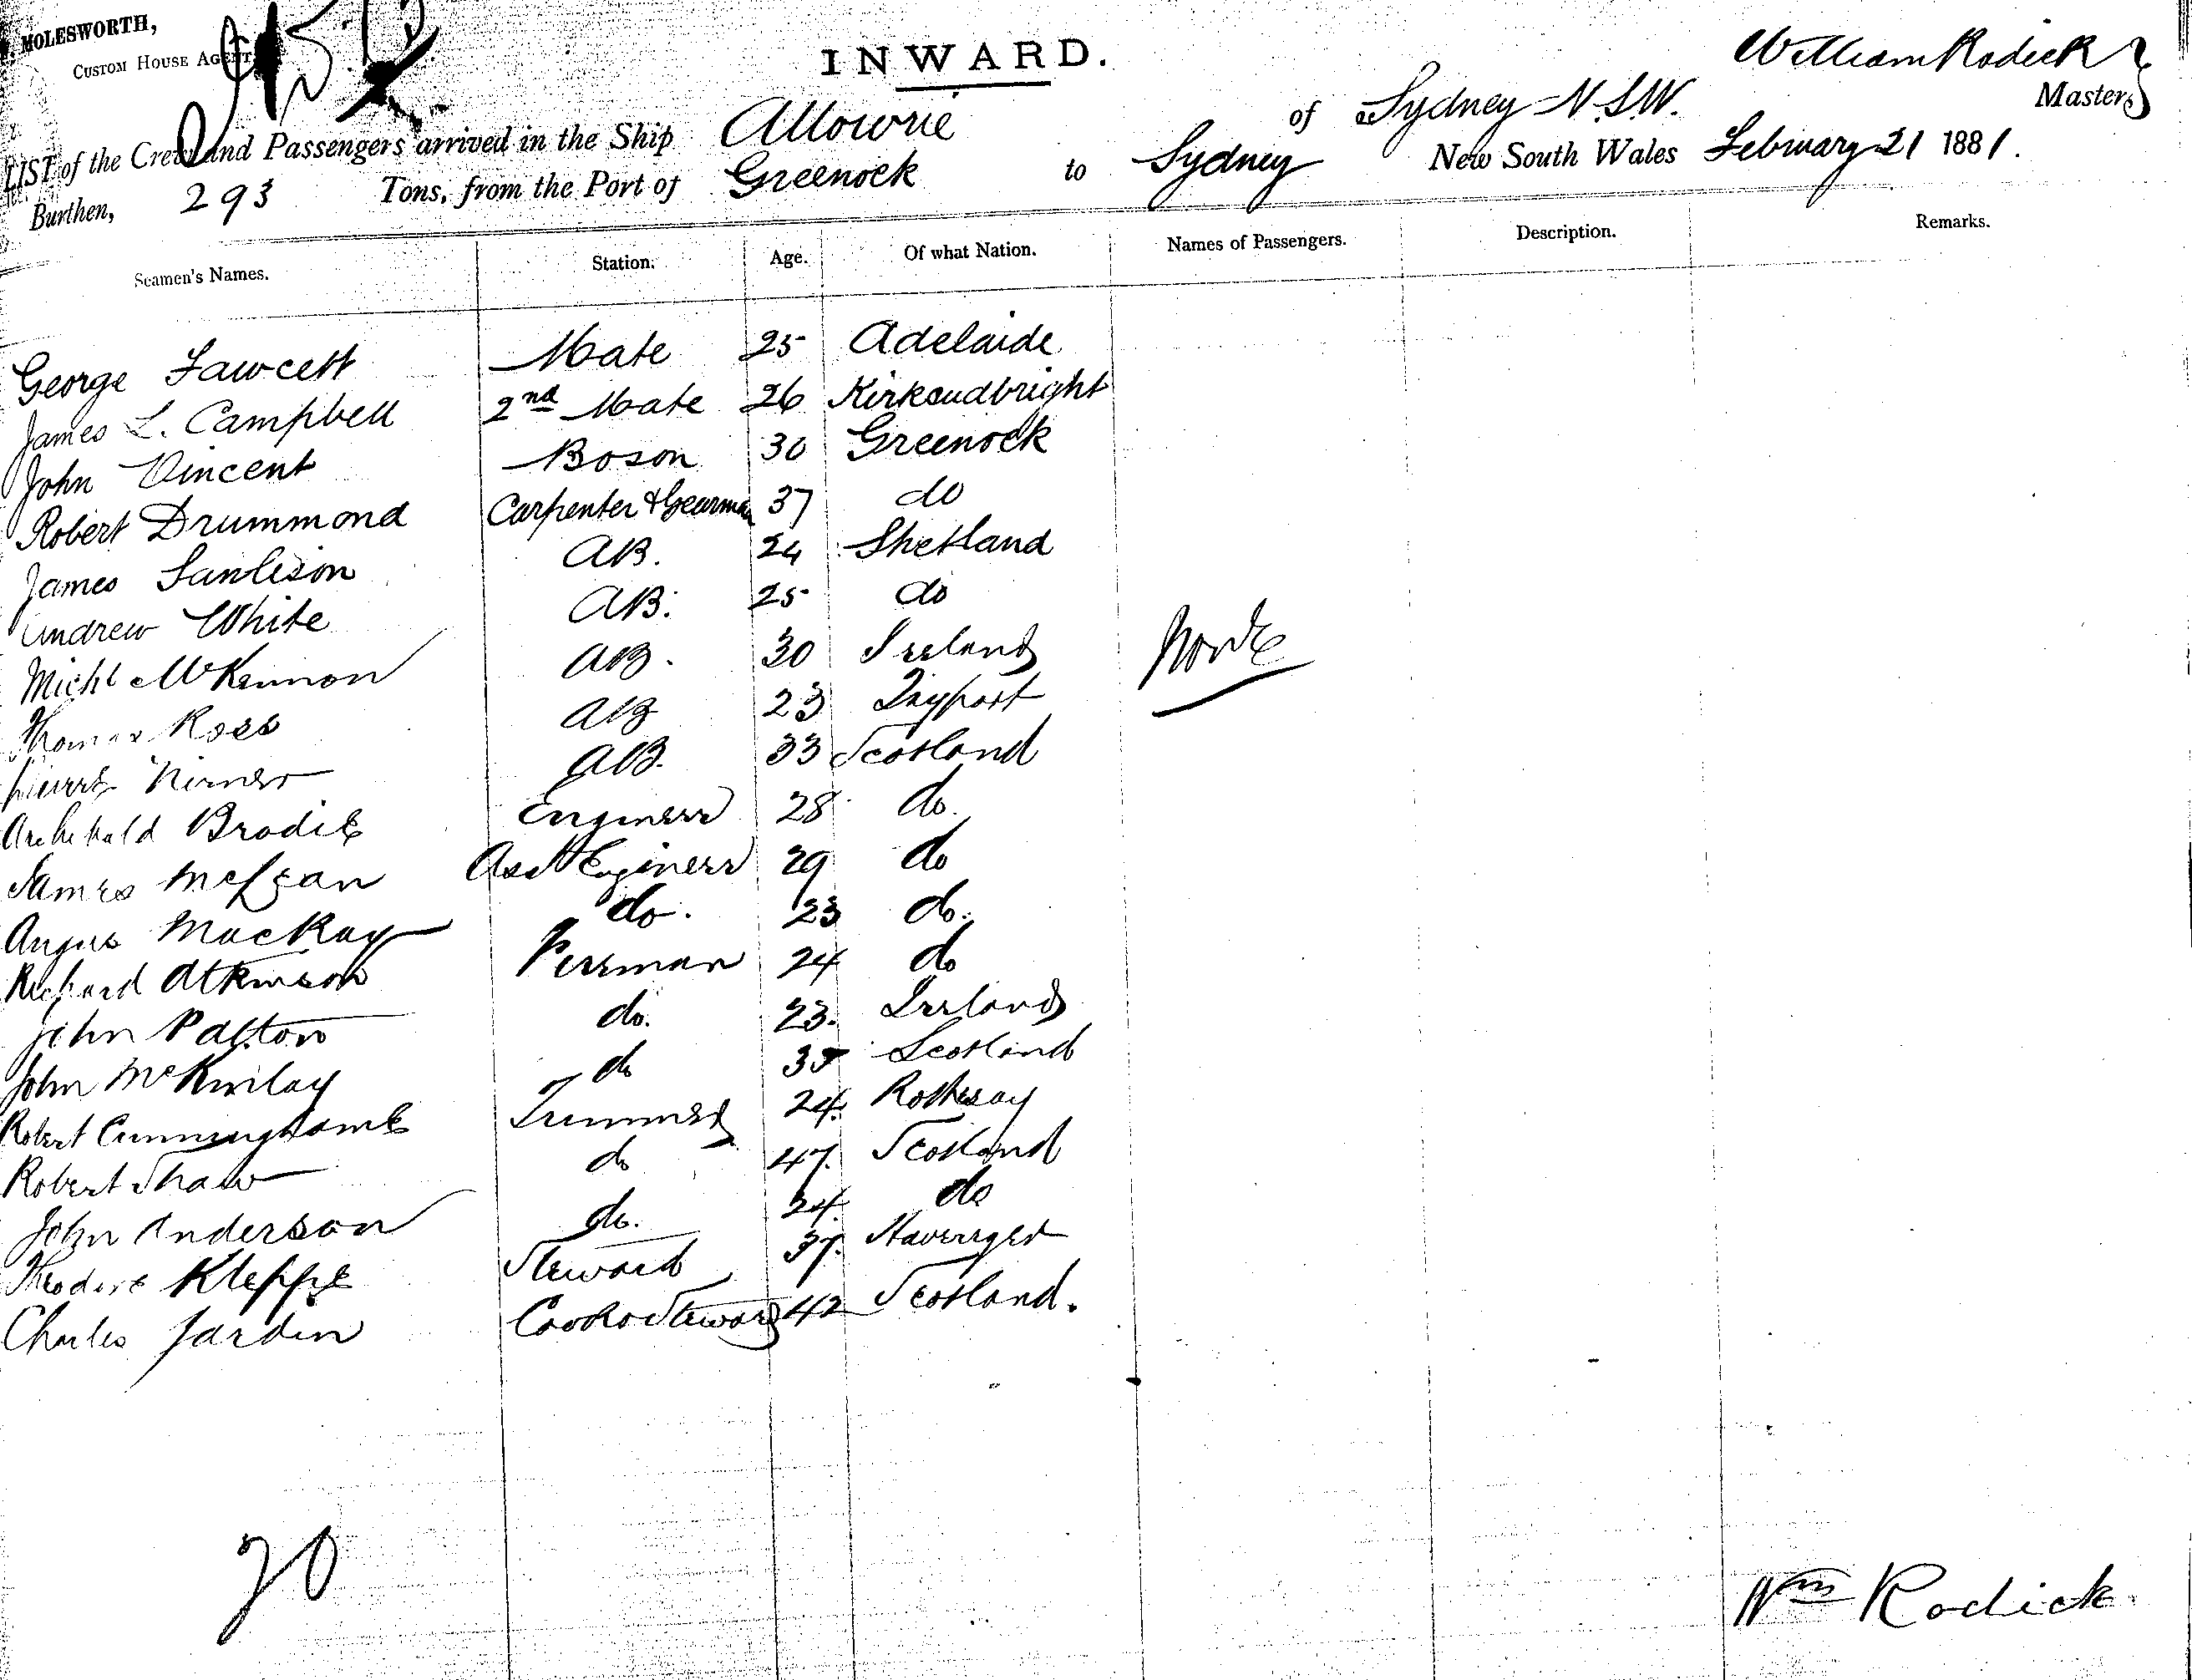 MOLESWORTH,
CUSTOM HOUSE AGENT
INWARD.
William Rodick
Master,
LIST of the Crew and Passengers arrived in the Ship Allowrie of Sydney N.S.W.
Burthen, 293 Tons, from the Port of Greenock to Sydney New South Wales February 21 1881.
Seamen's Names. Station. Age. Of what Nation. Names of Passengers. Description. Remarks.
George Fawcett Mate 25 Adelaide
James L. Campbell 2nd Mate 26 Kirkcudbright
John Vincent Boson 30 Greenock
Robert Drummond Carpenter & Gearman 37 do
James AB. 24 Shetland
Andrew White AB. 25 do
Michl McKennon AB. 30 Ireland
None
Thomas Ross AB 23 Tayport
AB. 33 Scotland
Archibald Brodie Engineer 28 do.
James McLean Asst Engineer 29 do
Angus MacKay do. 23 do.
Richard Atkinson Fireman 24 do
John Patton do. 23. Ireland
John McKinlay do 35 Scotland
Robert Cunninghame Trimmer 24. Rothesay
Robert Shaw do 47. Scotland
John Anderson do. 24. do
Theodore Kleppe Steward 37.
Charles Jardin Cook & Steward 42 Scotland.
20
Wm Rodick